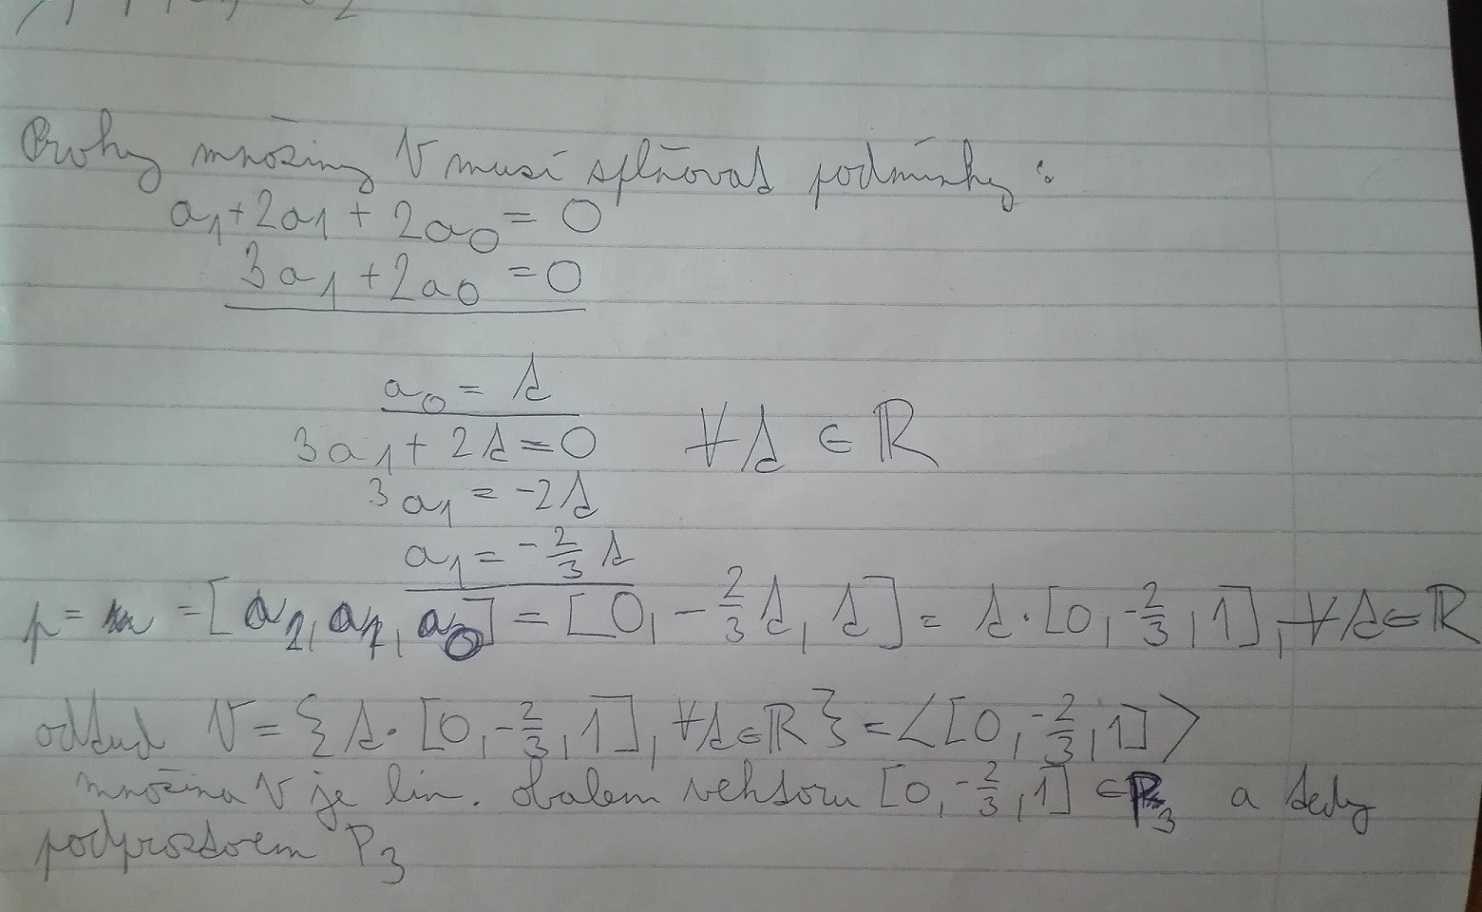 Prvky množiny V musí splňovat podmínky:
a₁+2a₁+2a₀=0
3a₁+2a₀=0
a₀=t
3a₁+2t=0 ∀t∈ℝ
3a₁=-2t
a₁=-2/3 t
p= =[a₂,a₁,a₀]=[0,-2/3t,t]=t·[0,-2/3,1],∀t∈ℝ
odtud V={t·[0,-2/3,1],∀t∈ℝ}=⟨[0,-2/3,1]⟩
množina V je lin. obalem vektoru [0,-2/3,1]∈P₃ a tedy
podprostorem P₃